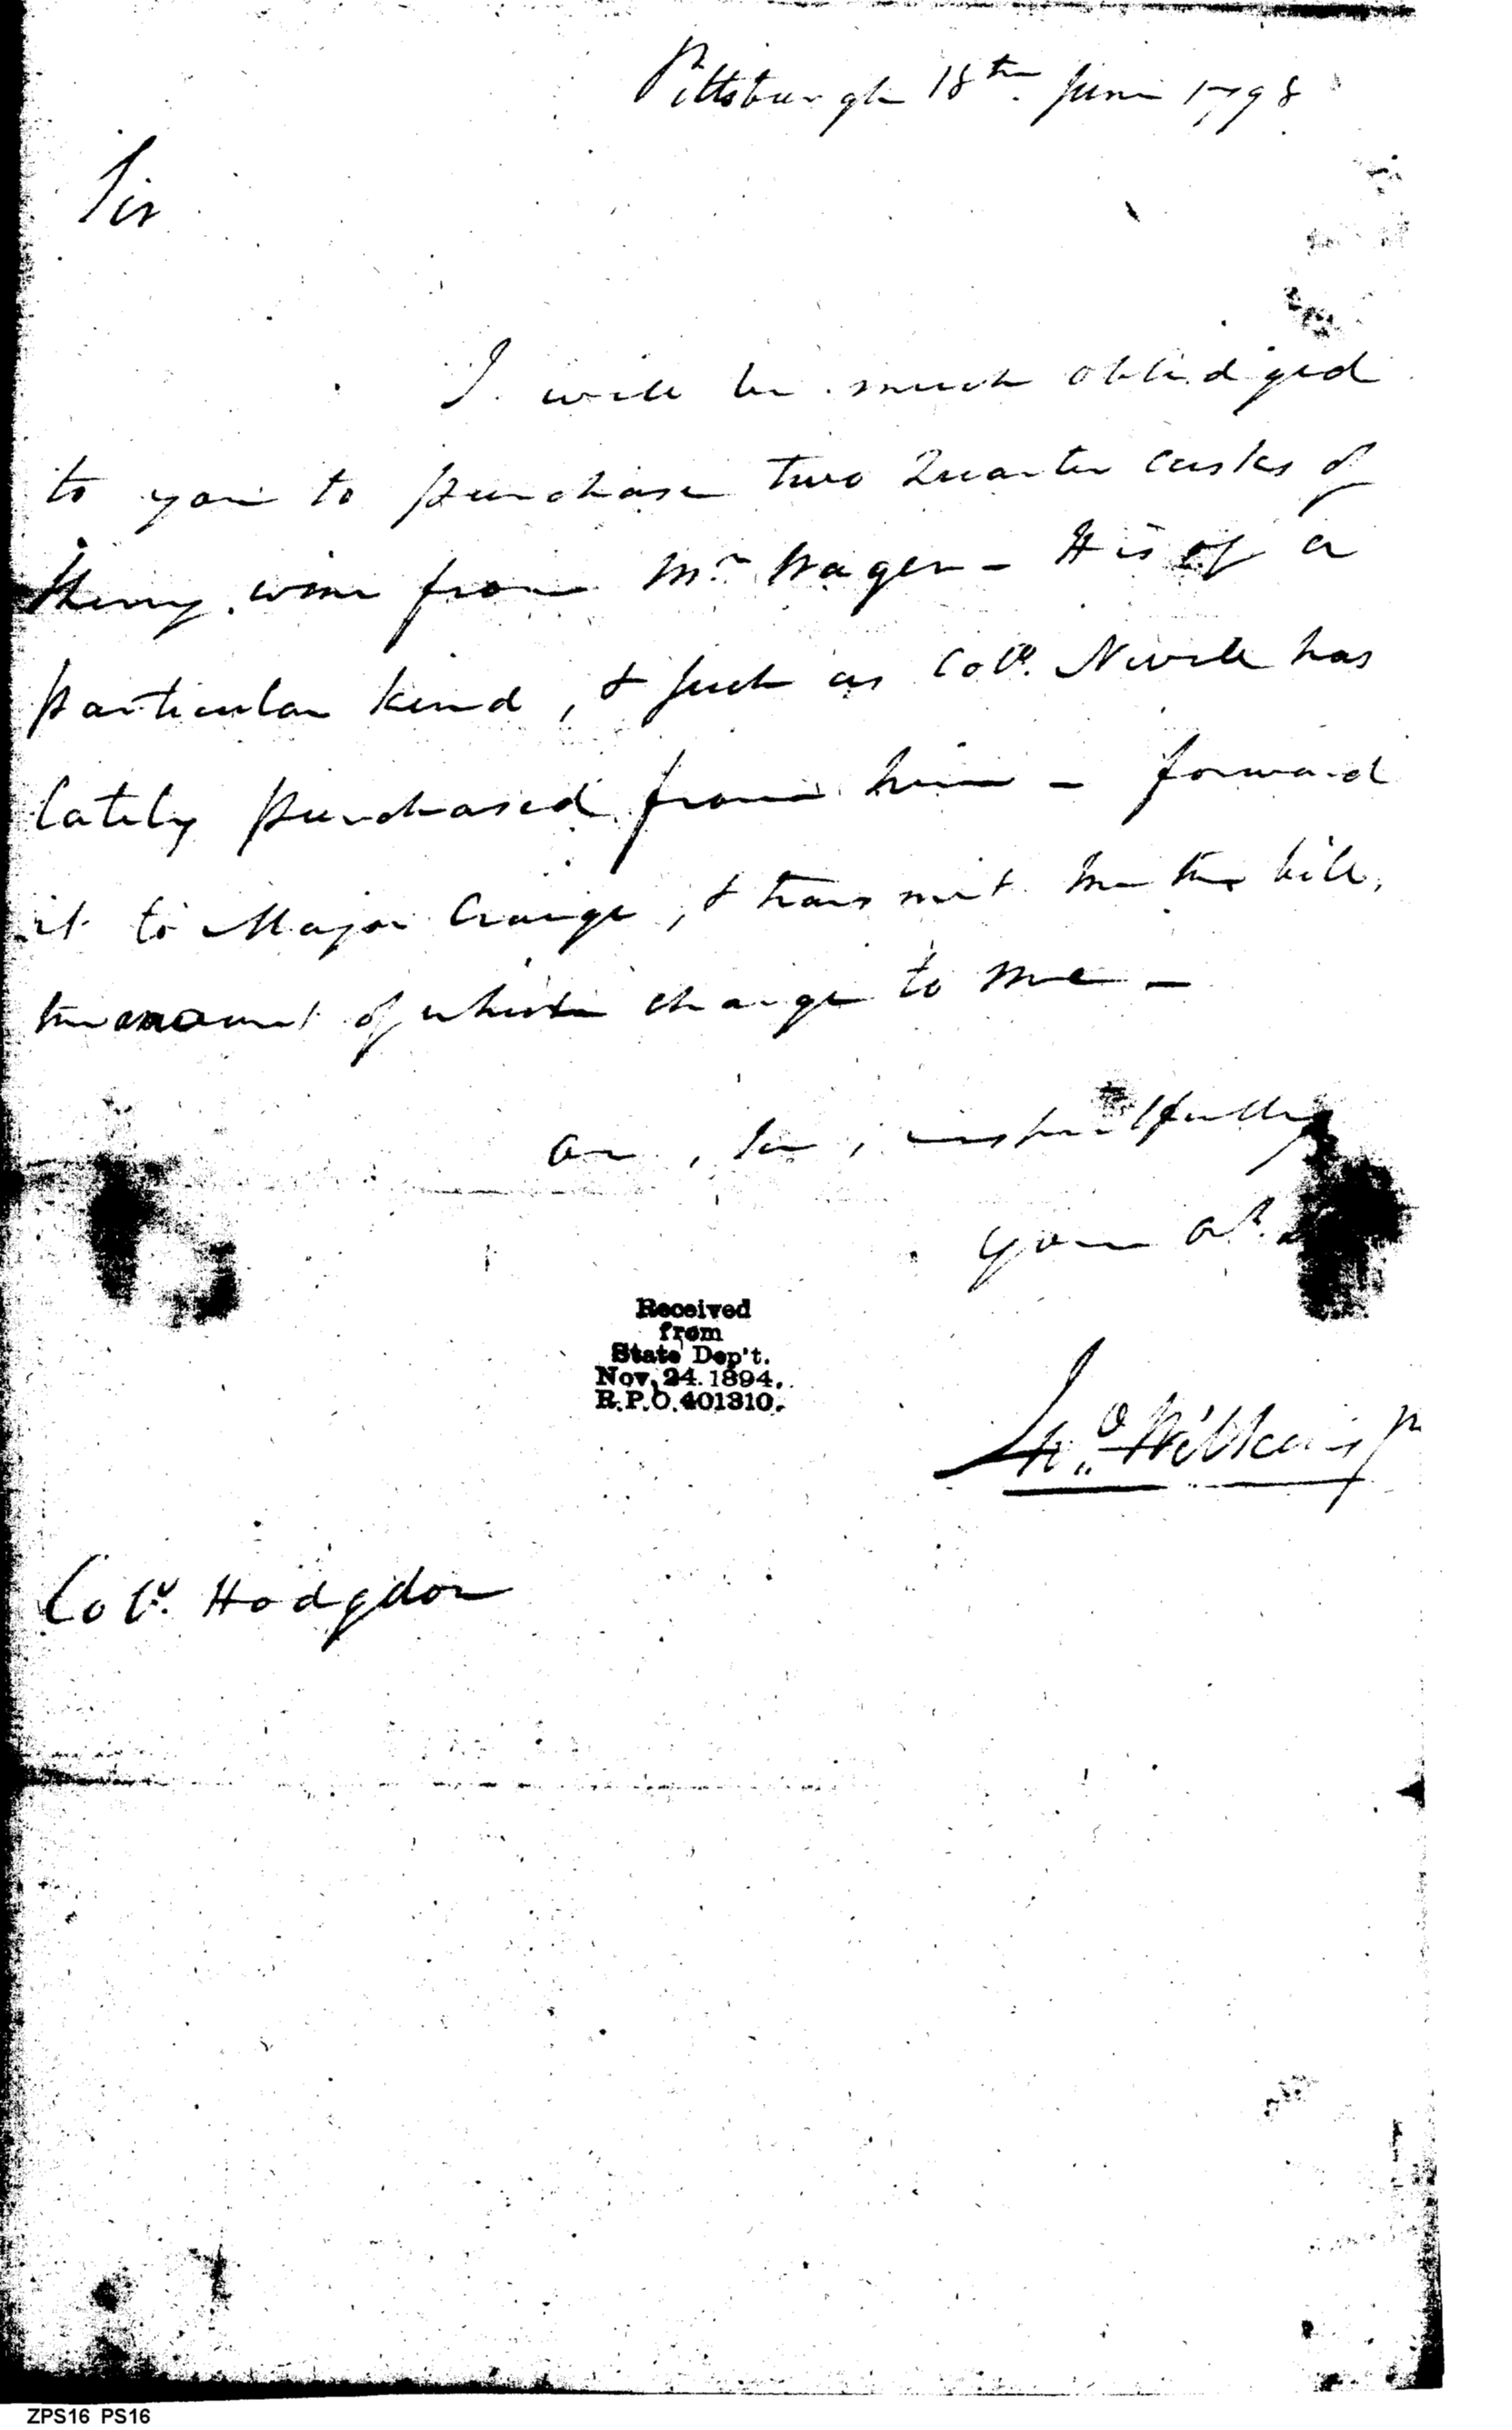 Pittsburgh 18th June 1798
Sir
I will be much oblidged
to you to purchase two Quarter Casks of
Sherry wine from Mr Wager - It is of a
particular kind, & such as Coll. Nevill has
lately purchased from him - forward
it to Major Craige, & transmit me the bill,
the amount of which charge to me -
am, Sir, respectfully
your ob.
Received
from
State Dep't.
Nov. 24. 1894.
R.P.O. 401310.
Jno Wilkins Jr
Coll. Hodgdon
ZPS16 PS16